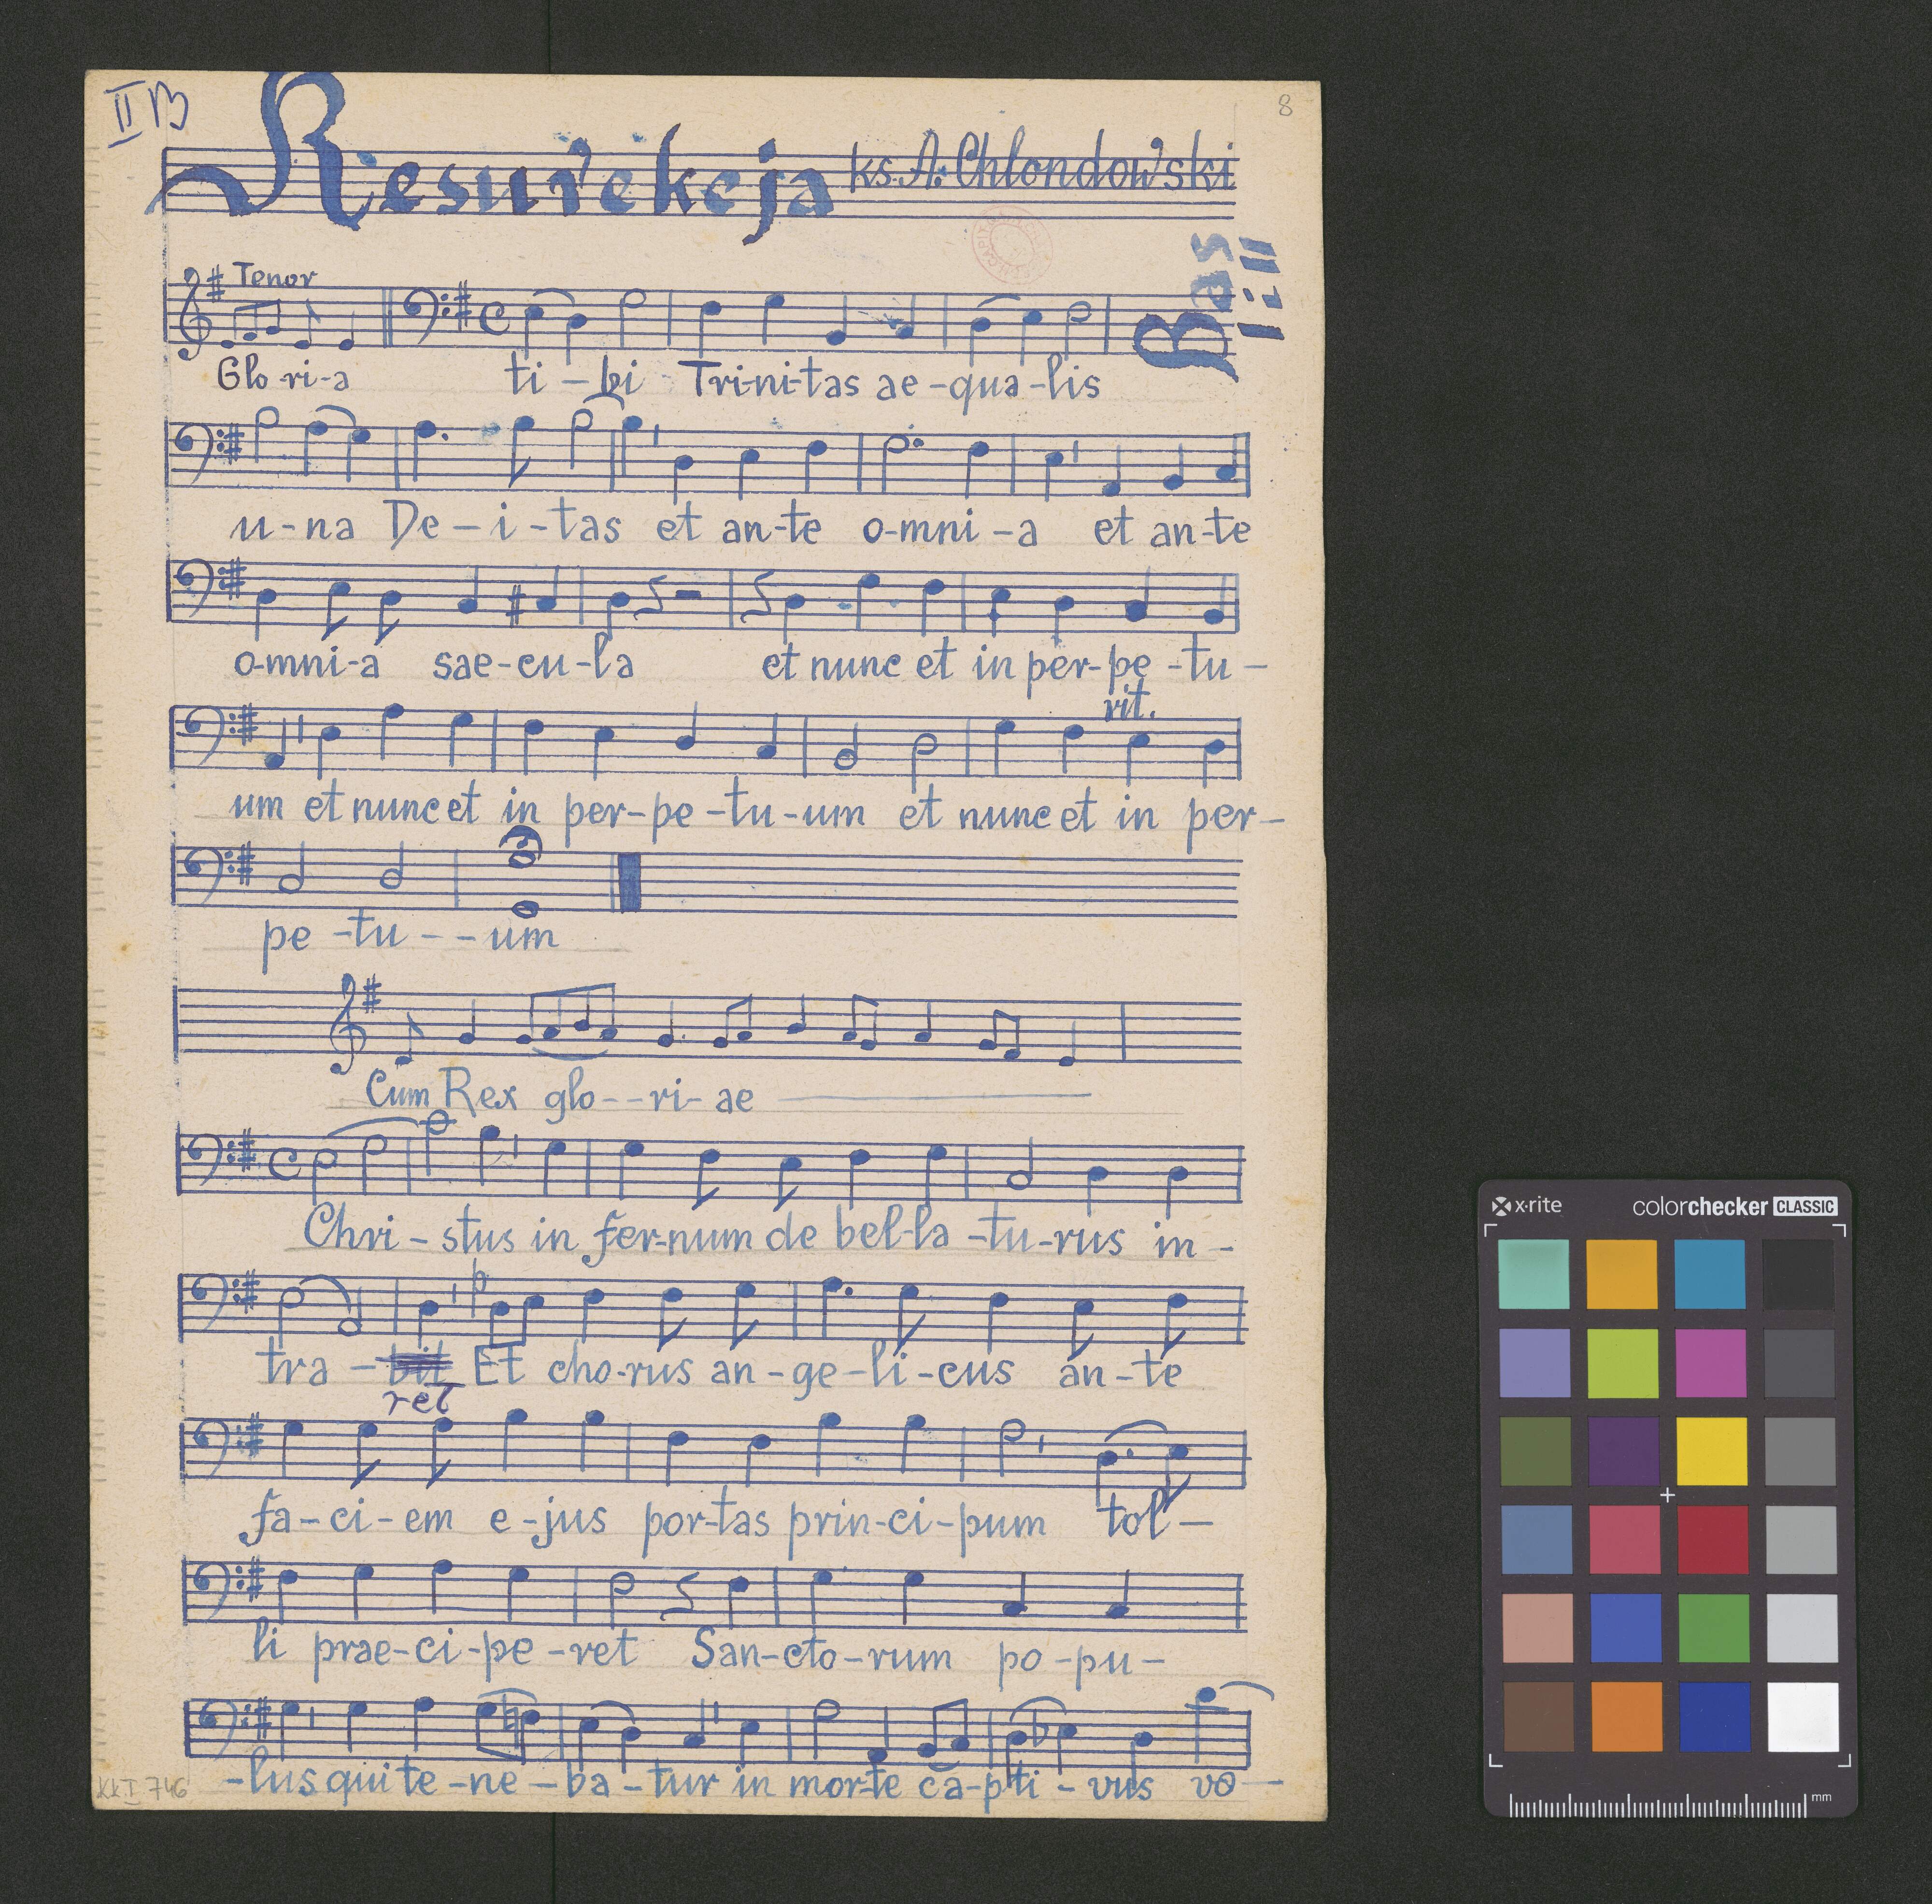 II B
8
Resurekcja ks. A. Chlondowski
Bas I i II
Tenor
Glo-ri-a ti-bi Tri-ni-tas ae-qua-lis
u-na De-i-tas et an-te o-mni-a et an-te
o-mni-a sae-cu-la et nunc et in per-pe-tu-
rit.
um et nunc et in per-pe-tu-um et nunc et in per-
pe-tu--um
Cum Rex glo--ri-ae
Chri-stus in fer-num de bel-la-tu-rus in-
p
tra-bit Et cho-rus an-ge-li-cus an-te
ret
fa-ci-em e-jus por-tas prin-ci-pum tol-
li prae-ci-pe-ret San-cto-rum po-pu-
-lus qui te-ne-ba-tur in mor-te ca-pti-vus vo-
KK.I 746
x·rite colorchecker CLASSIC
mm